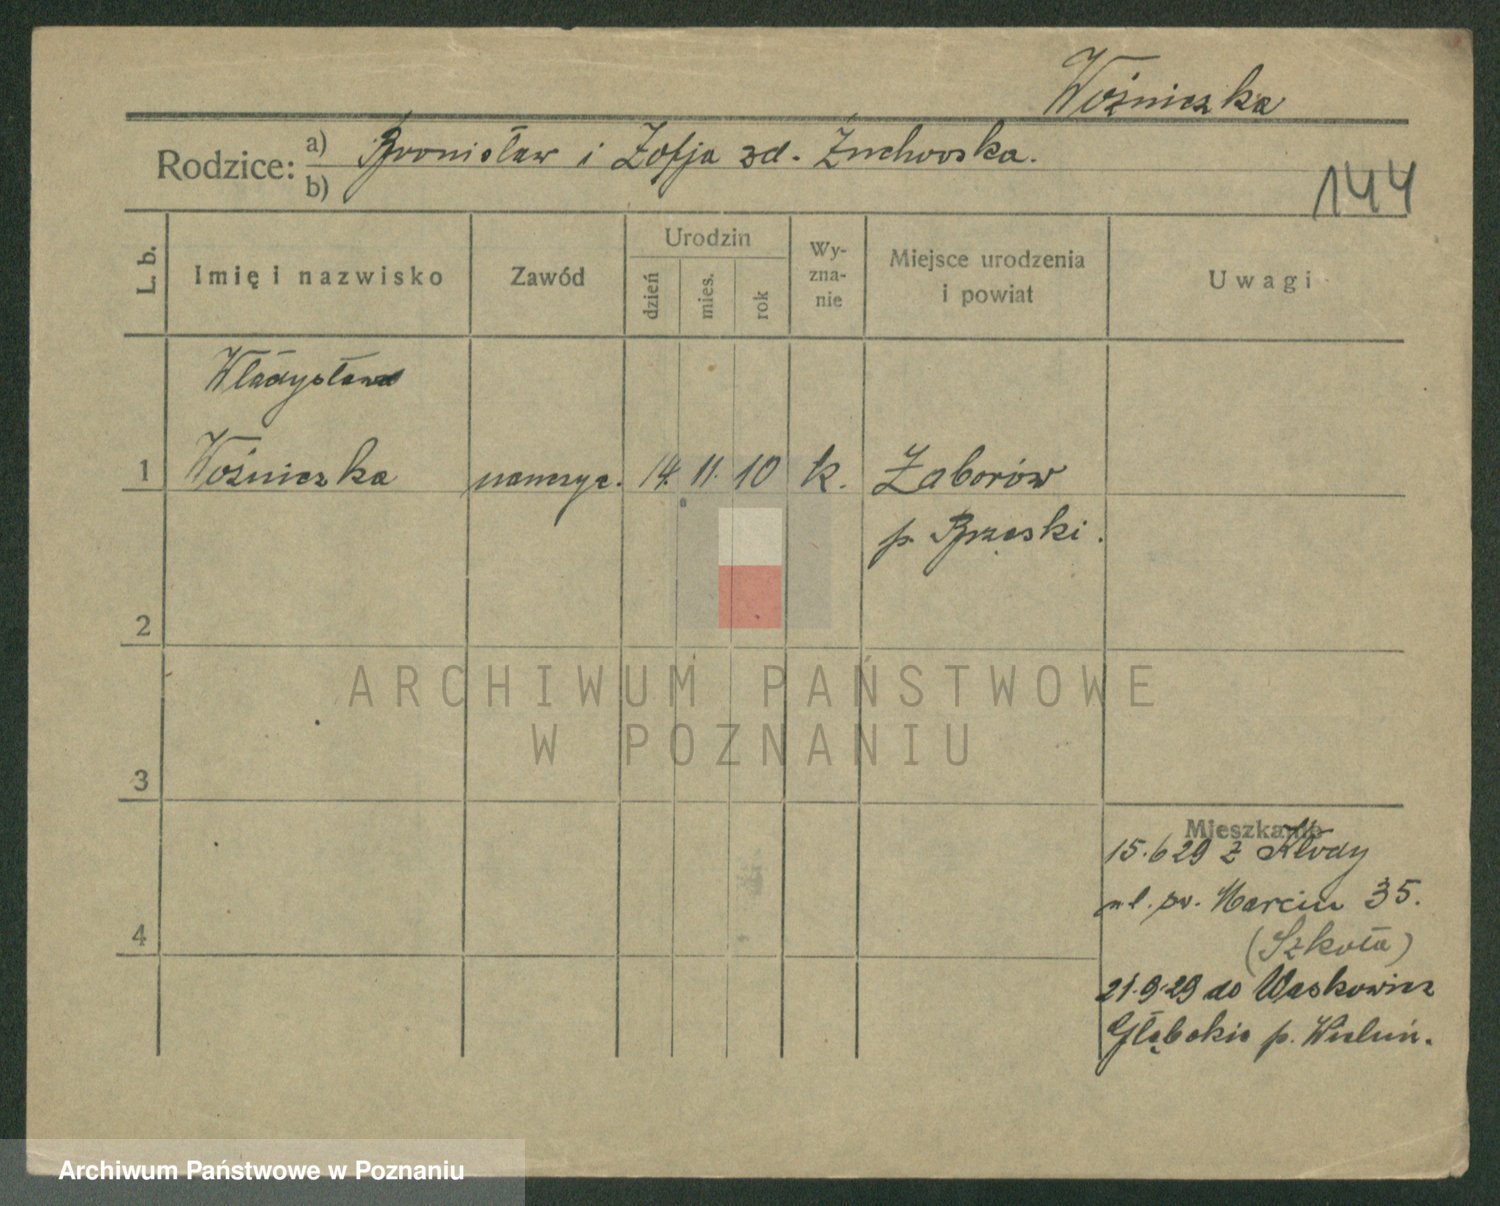 Woźniczka
Rodzice: a) Bronisław i Zofja zd. Żuchowska.
b)
144
L. b.
Imię i nazwisko
Zawód
Urodzin
dzień
mies.
rok
Wy-
zna-
nie
Miejsce urodzenia
i powiat
Uwagi
Władysław
1 Woźniczka nauczyc. 14. 11. 10 k. Zaborów
p. Brzeski.
2
3
4
Mieszkanie
15.6 29 z Kłody
ul. św. Marcin 35.
(Szkoła)
21.9.29 do
p. Wieluń.
ARCHIWUM PAŃSTWOWE
W POZNANIU
Archiwum Państwowe w Poznaniu